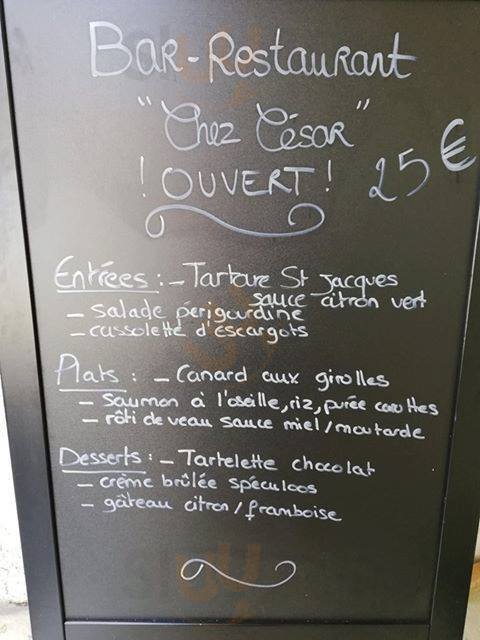 Bar-Restaurant
"Chez César"
! OUVERT ! 25 €
Entrées : - Tartare St Jacques
sauce citron vert
- Salade périgourdine
- cassolette d'escargots
Plats : - Canard aux girolles
- Saumon à l'oseille, riz, purée carottes
- rôti de veau sauce miel/moutarde
Desserts : - Tartelette chocolat
- crème brûlée spéculoos
- gâteau citron/framboise